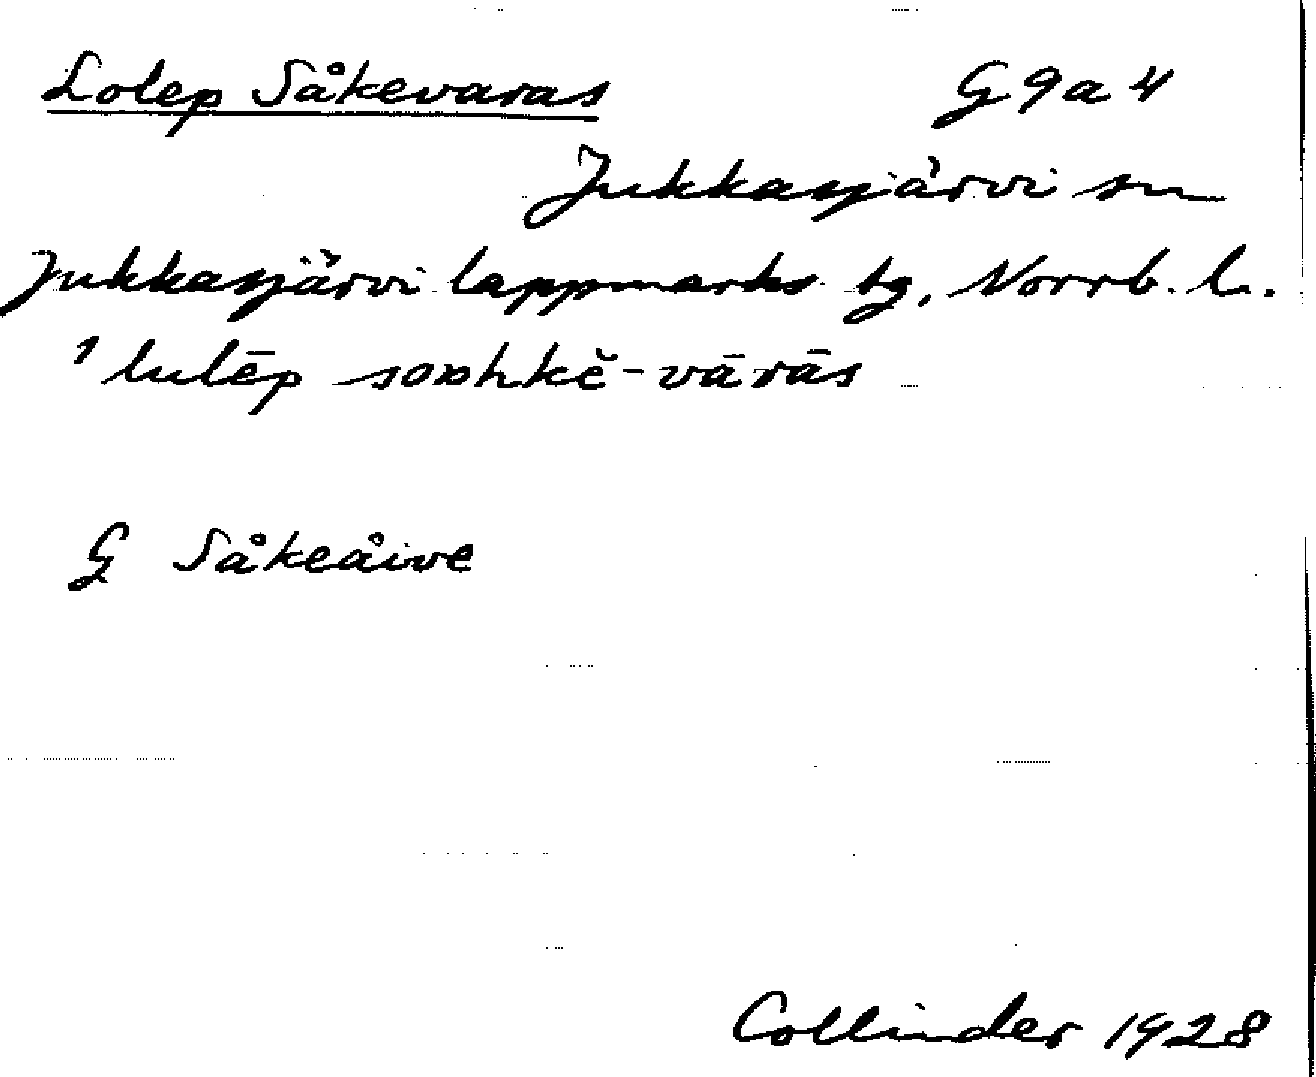 Lolep Såkevaras G 9 a 4
Jukkasjärvi sn
Jukkasjärvi lappmarks tg, Norrb. l.
' lulēp soɒhkĕ-vārās
G Såkeåive
Collinder 1928